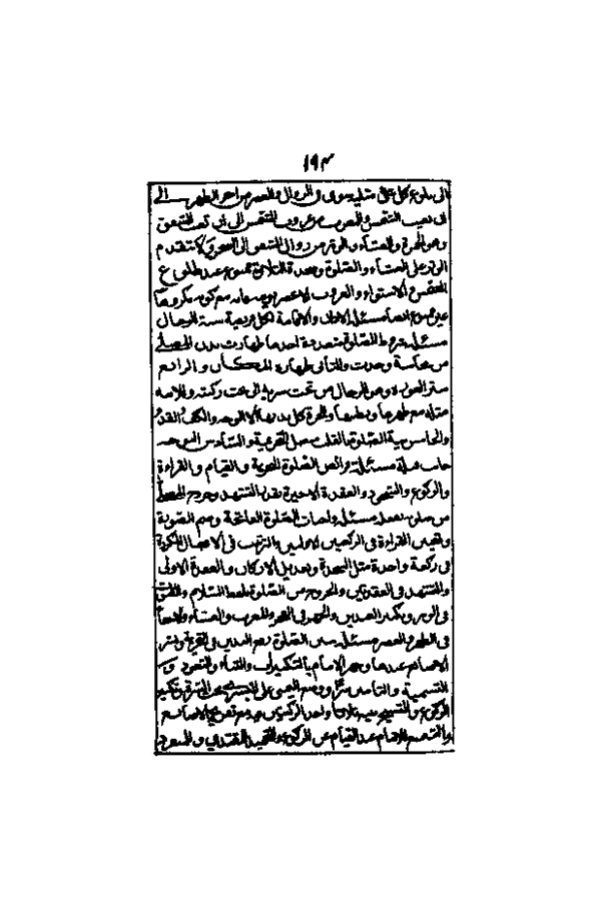 ١٩٣
الى بلوغ كل ظل مثليه سوى فئ الزوال والعصر من اخر الظهر الى
الى مغيب الشمس والمغرب من غروب الشمس الى ان تغيب الشفق
وهو الحمرة والعشاء والوتر من زوال الشفق الى الصبح ولا يتقدم
الوتر على العشاء والصلوة وسجدة التلاوة ممنوع عند طلوع
الشمس والاستواء والغروب الا عصر يومه فانه مع كونه مكروها
غير ممنوع ايضا مسئلة الاذان والاقامة لكل فريضة سنة للرجال
مسئلة شروط الصلوة متعددة احدها طهارت بدن المصلى
من نجاسة وحدث والثانى طهارة المكان والرابع
ستر العورة وهو للرجال من تحت سرته الى تحت ركبته وللامة
مثله مع ظهرها وبطنها وللحرة كل بدنها الا الوجه والكف والقدم
والخامس نية الصلوة بالقلب متصل التحريمة والسادس التوجه
جانب قبلة مسئلة فرائض الصلوة التحريمة والقيام والقراءة
والركوع والسجود والقعدة الاخيرة بقدر التشهد وخروج المصلى
من صلوته بعمله مسئلة واجبات الصلوة الفاتحة وضم السورة
وتعيين القراءة فى الركعتين الاوليين والترتيب فى الافعال المكررة
فى ركعة واحدة مثل السجدة وتعديل الاركان والقعدة الاولى
والتشهد فى القعدتين والخروج من الصلوة بلفظ السلام والقنوت
فى الوتر وتكبيرات العيدين والجهر فى الفجر والمغرب والعشاء والاخفاء
فى الظهر والعصر مسئلة سنن الصلوة رفع اليدين فى التحريمة ونشر
الاصابع عندها وجهر الامام بالتكبيرات والثناء والتعوذ و
التسمية والتأمين سرا ووضع اليمنى على اليسرى تحت السرة وتكبير
الركوع والتسبيح فيه ثلاثا واخذ الركبتين بيديه مع تفريج الاصابع
والتسميع للامام عند القيام عن الركوع والتحميد للمقتدى والمنفرد